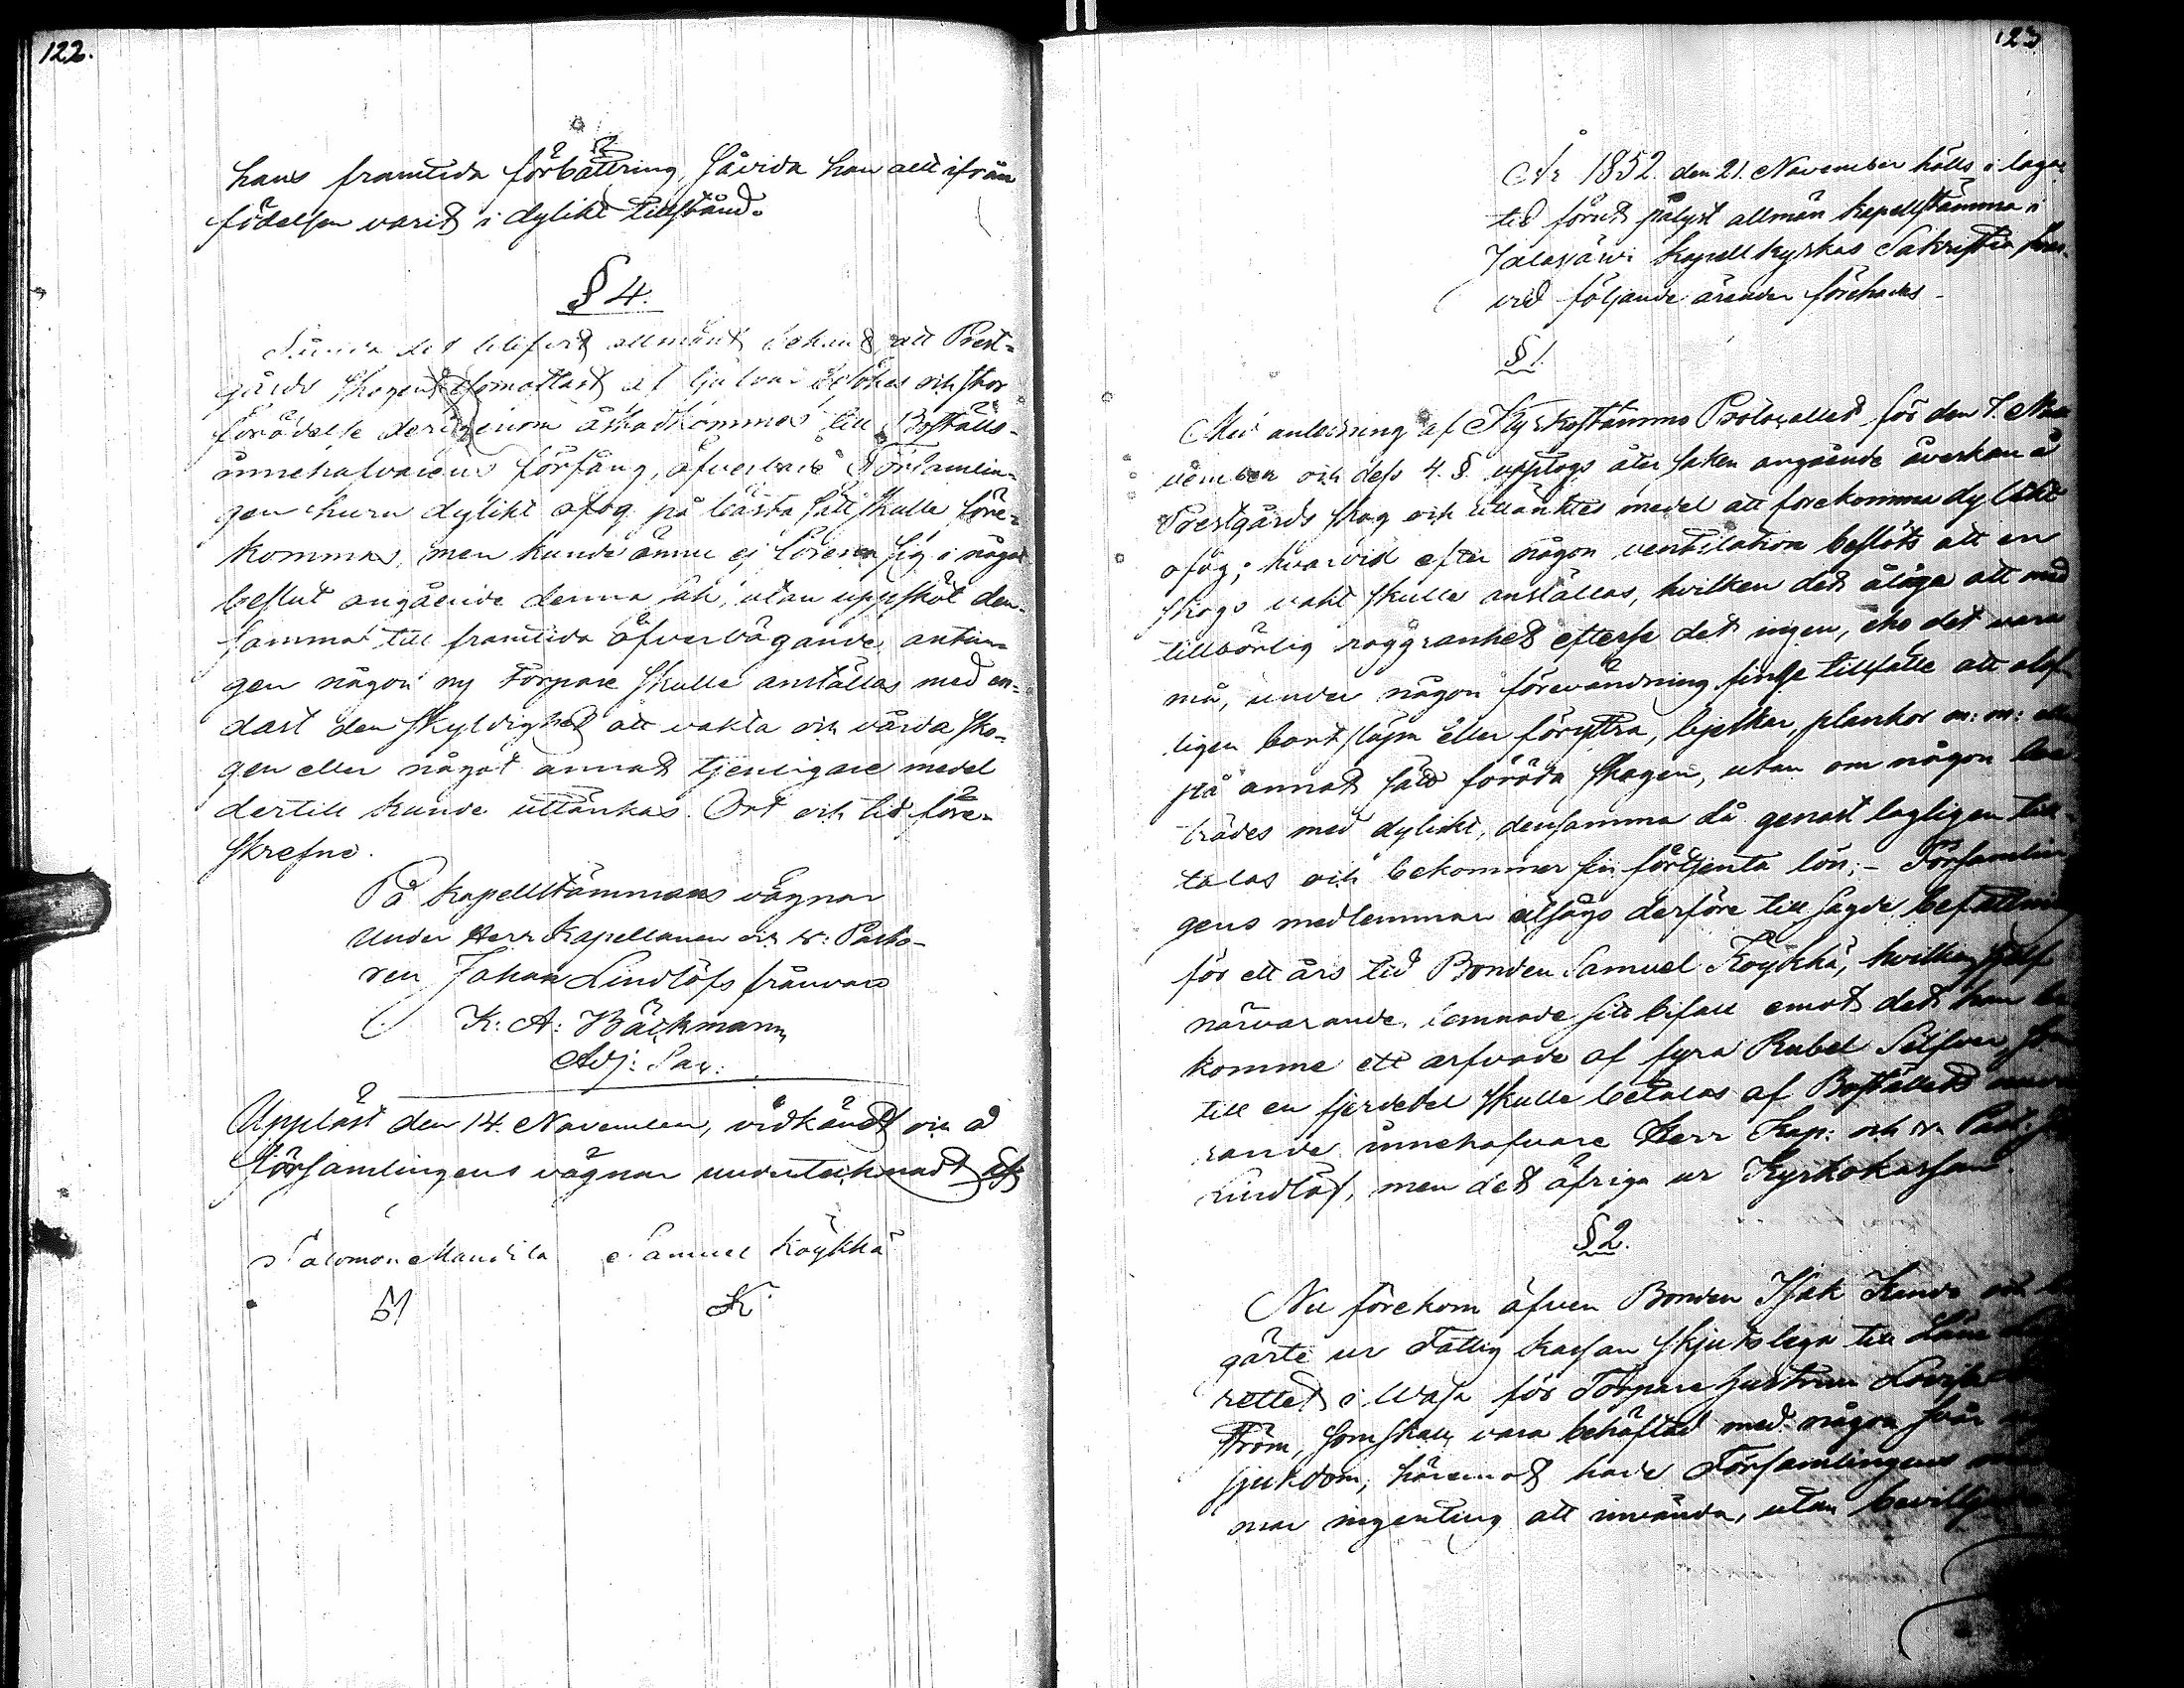 122.
hans framtida förbättring, såvida han allt ifrån
födelsen varit i dylikt tillstånd.
§ 4.
det blifvit allmänt bekant, att Prest-
gårds skogen omåttligt af tjufvar besökes och skog
förödelse derigenom åstadkommes till Boställs-
innehafvarens förfång, öfverlade Församlin-
gen huru dylikt ofog på bästa sätt skulle före-
kommas, men kunde ännu ej förena sig i något
beslut angående denna sak, utan uppsköt den-
samma till framtida öfvervägande, antin-
gen någon ny Torpare skulle anställas med en-
dast den skyldighet att vakta och vårda sko-
gen eller något annat tjenligare medel
dertill kunde uttänkas. Ort och tid före-
skrefne.
På Kapellstämmans vägnar
Under Herr Kapellanen och v: Pasto-
ren Johan Lindlöfs frånvaro
K: A: Bäckmann
Adj: Sac:
Uppläst den 14. November, vidkändt och å
Församlingens vägnar undertecknadt af
Salomon Mandila Samuel Köykkä
M K
123
År 1852. den 21. November hölls i laga
tid förut pålyst allmän kapellstämma i
Jalasjärvi Kapellkyrkas Sakristia hvar-
vid följande ärenden förehades
§ 1.
Med anledning af Kyrkostämmo Protocollet för den 7. No-
vember och dess 4. §. upptogs åter saken angående åverkan å
Prestgårds skog och uttänktes medel att förekomma dylikt
ofog; hvarvid efter någon ventilation beslöts att en
skogs vakt skulle anställas, hvilken det ålåge att med
tillbörlig noggranhet efterse det ingen, eho det vara
må, under någon förevändning finge tillfälle att olof-
ligen bortsläpa eller föryttra, bjelkar, plankor m: m: eller
på annat sätt föröda skogen, utan om någon be-
trädes med dylikt, densamma då genast lagligen till-
talas och bekommer sin förtjenta lön; - Församlin-
gens medlemmar utsågs derföre till sagde befattning
för ett års tid Bonden Samuel Köykkä, hvilken sjelf
närvarande, lemnade sitt bifall emot det han be-
komme ett arfvode af fyra Rubel Silfver, som
till en fjerdedel skulle betalas af Boställets nuva-
rande innehafvare Herr Kap: och v. Past:
Lindlöf, men det öfriga ur Kyrkokassan.
§ 2.
Nu förekom äfven Bonden Isak
gärte ur Fattig kassan skjutslega till
rettet i Wasa för Torpare hustrun Lovisa
ström, som skall vara behäftad med någon svår
sjukdom; häremot hade Församlingens
mar ingenting att invända, utan